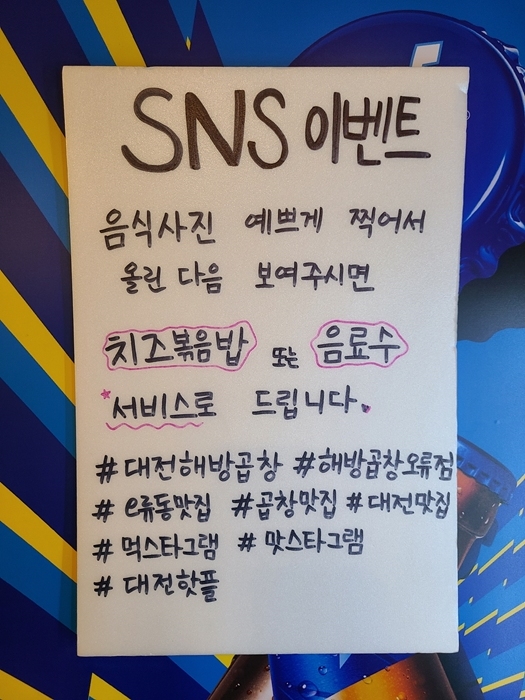 SNS 이벤트
음식사진 예쁘게 찍어서
올린 다음 보여주시면
치즈볶음밥 또는 음료수
*서비스로 드립니다.
#대전해방곱창 #해방곱창오류점
# e류동맛집 #곱창맛집 #대전맛집
# 먹스타그램 # 맛스타그램
# 대전핫플